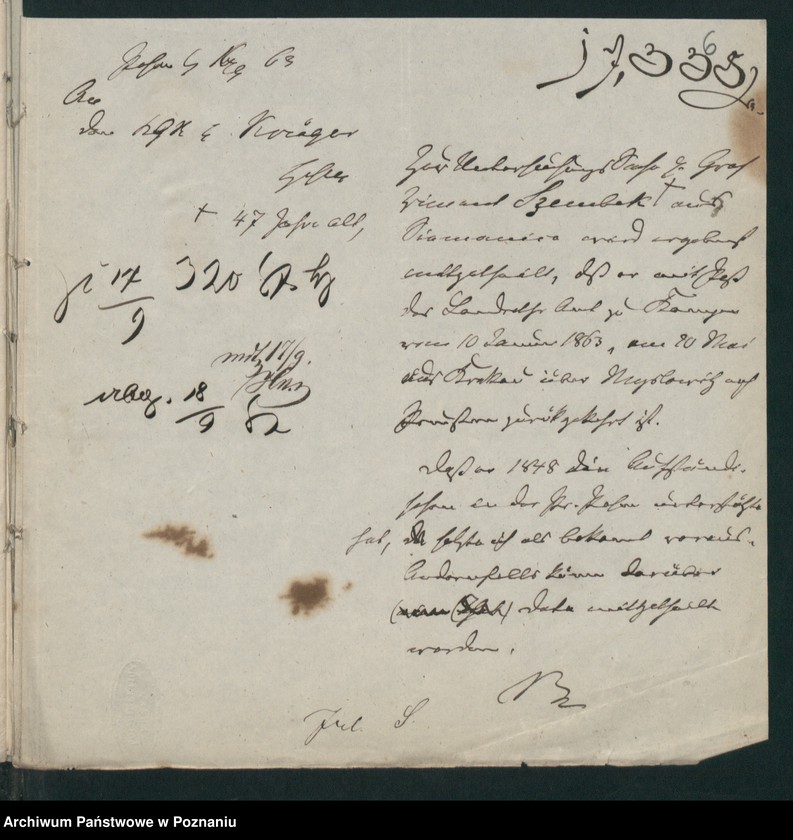 63
An
den
Krüger
† 47 Jahre alt,
320
17/9
mit 17/9.
18/9
17,335
6
Zur Untersuchungs Sache g. Graf
Szembek † aus
Siemianice wird ergebenst
mitgetheilt, daß er mit Paß
des Landraths Amt zu Kempen
vom 10 Januar 1863, am 20 Mai
aus Krakau über Myslowitz nach
Preußen zurückgekehrt ist.
Daß er 1848 die Aufständi-
schen in der Pr. Posen unterstützt
hat, setzte ich als bekannt voraus.
Andernfalls können darüber
data mitgetheilt
werden.
S.
Archiwum Państwowe w Poznaniu